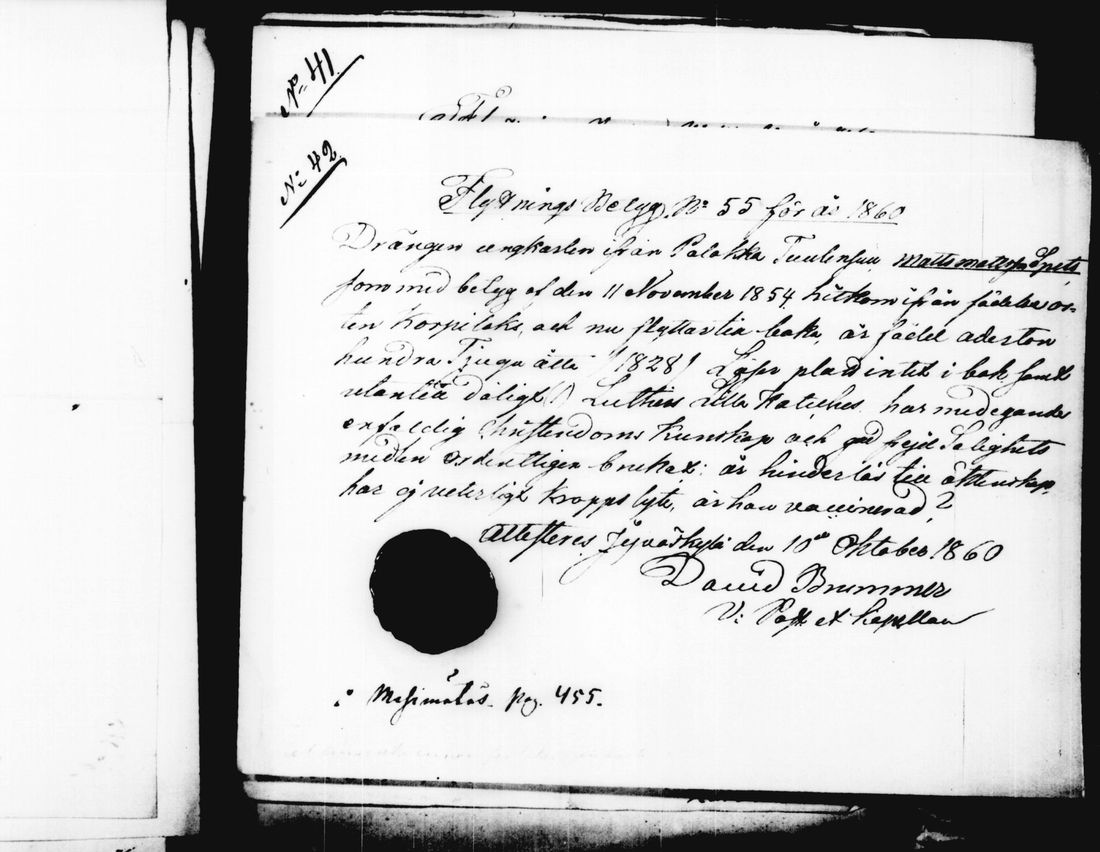 No 41.
No 42
Flyttnings Belyg No 55 för år 1860
Drängen ungkarlen ifrån Palokka Tuulensuu, Matts Mattsson Spets
som med belyg af den 11 November 1854 hitkom ifrån födelseor-
ten Korpilaks, och nu flyttar tillbaka, är född aderton
hundra Tjugu åtta /1828/ Läser placet intet i bok samt
utantill dåligt Luthers Lilla Kateches har medegande
enfaldig Christendoms Kunskap och god frejd Salighets
medlen ordentligen brukat: är hinderlös till äktenskap,
har ej veterligt kropps lyte, är han vaccinerad?
Attesteres Jyväskylä den 10de Oktober 1860
David Brummer
V: Past. et Kapellan
Pag. 455.